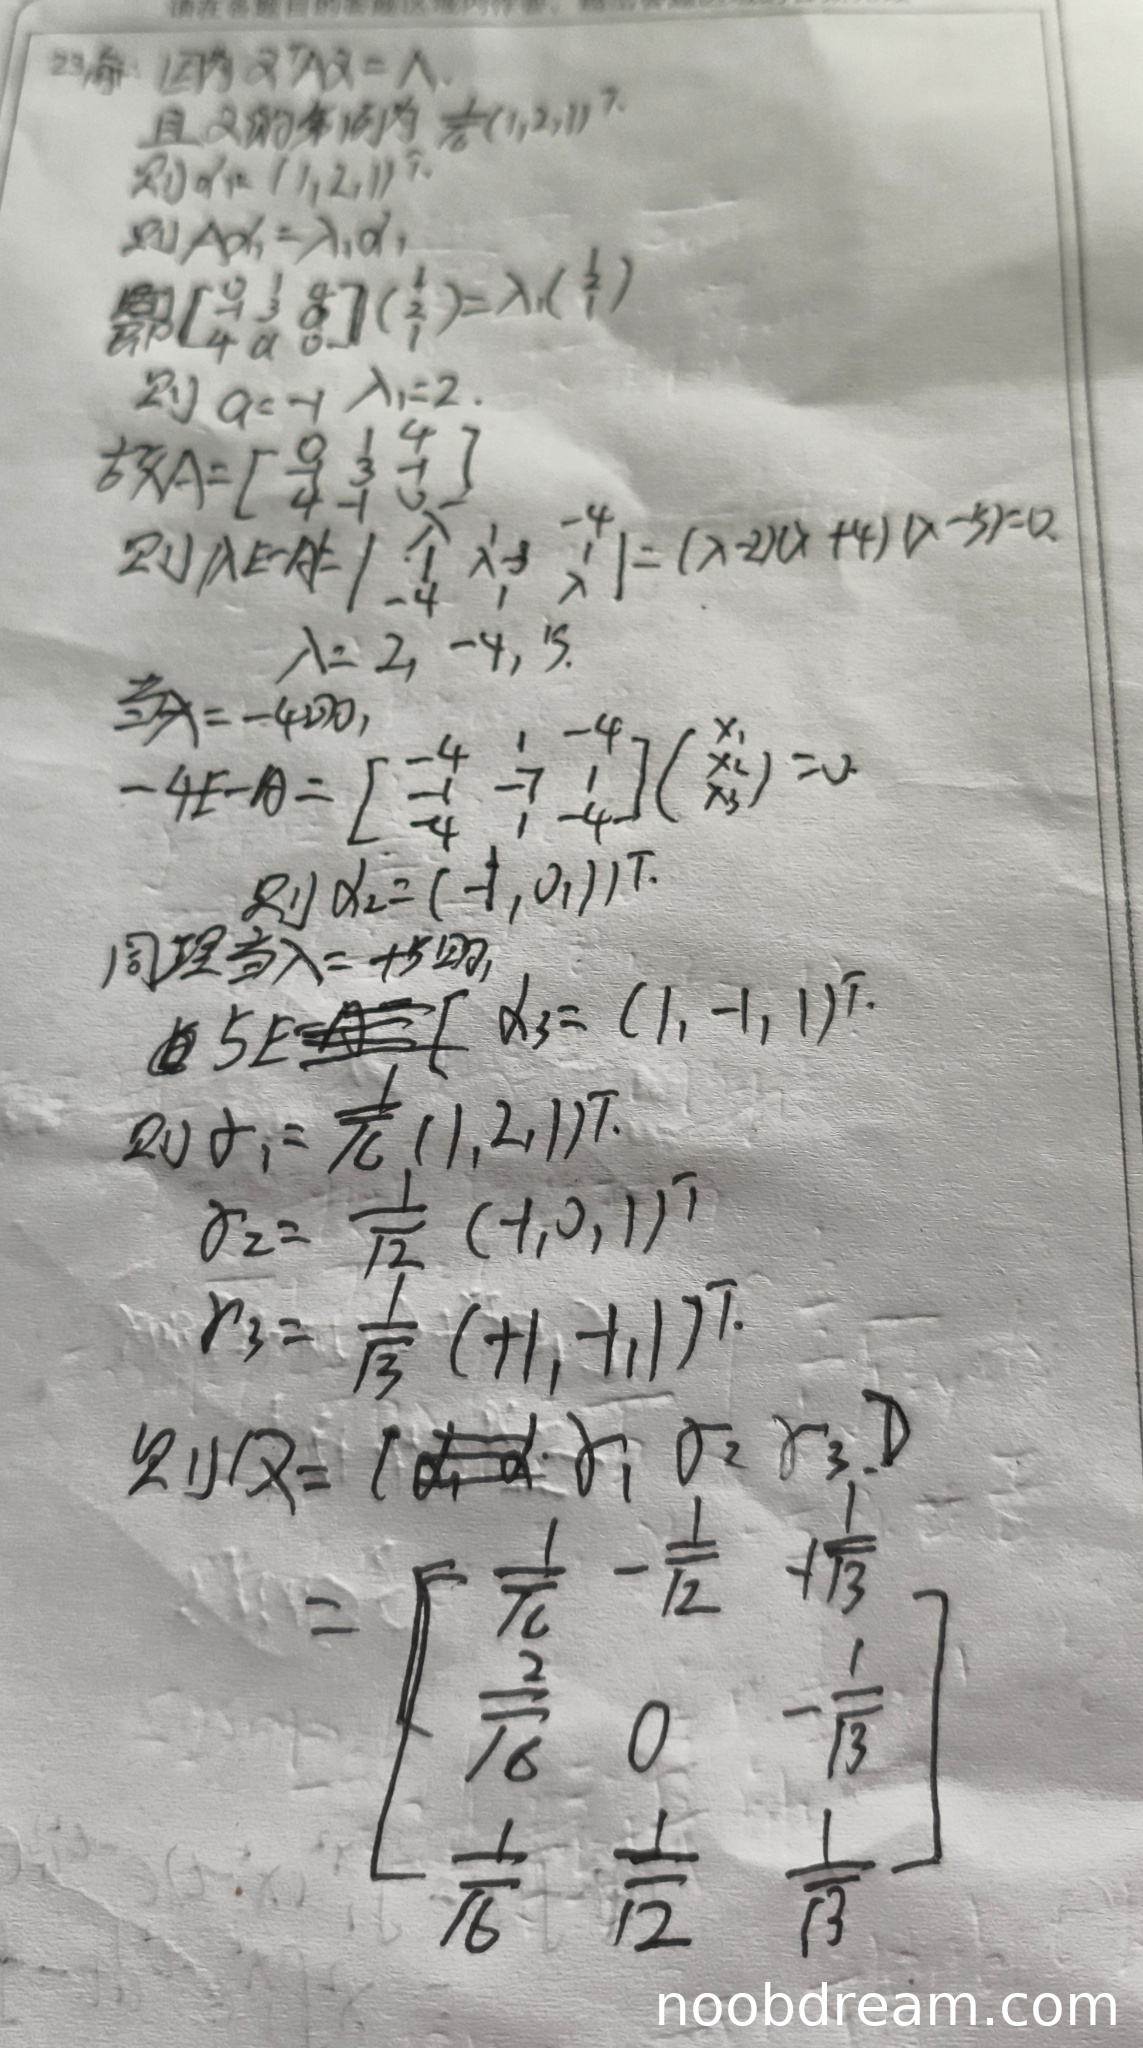 23, 解: 因为 Q^TAQ = Λ.
且 Q的第1列为 1/√6 (1,2,1)^T.
则 α1= (1,2,1)^T.
则 Aα1 = λ1α1
即 [0 1 4; -1 3 a; 4 a 0] (1 2 1) = λ1 (1 2 1)
则 a=-1 λ1=2.
故A= [0 1 4; -1 3 -1; 4 -1 0]
则 |λE-A|= |λ 1 -4; 1 λ-3 1; -4 1 λ| = (λ-2)(λ+4)(λ-5)=0.
λ= 2, -4, 5.
当λ=-4时,
-4E-A = [-4 1 -4; -1 -7 1; -4 1 -4] (x1 x2 x3) =0.
则 α2= (-1,0,1)^T.
同理当λ=+5时,
5E [ α3= (1,-1,1)^T.
则 γ1= 1/√6 (1,2,1)^T.
γ2= 1/√2 (-1,0,1)^T
γ3= 1/√3 (+1,-1,1)^T.
则 Q= [ γ1 γ2 γ3.]
= [1/√6 -1/√2 +1/√3
2/√6 0 -1/√3
1/√6 1/√2 1/√3]
noobdream.com